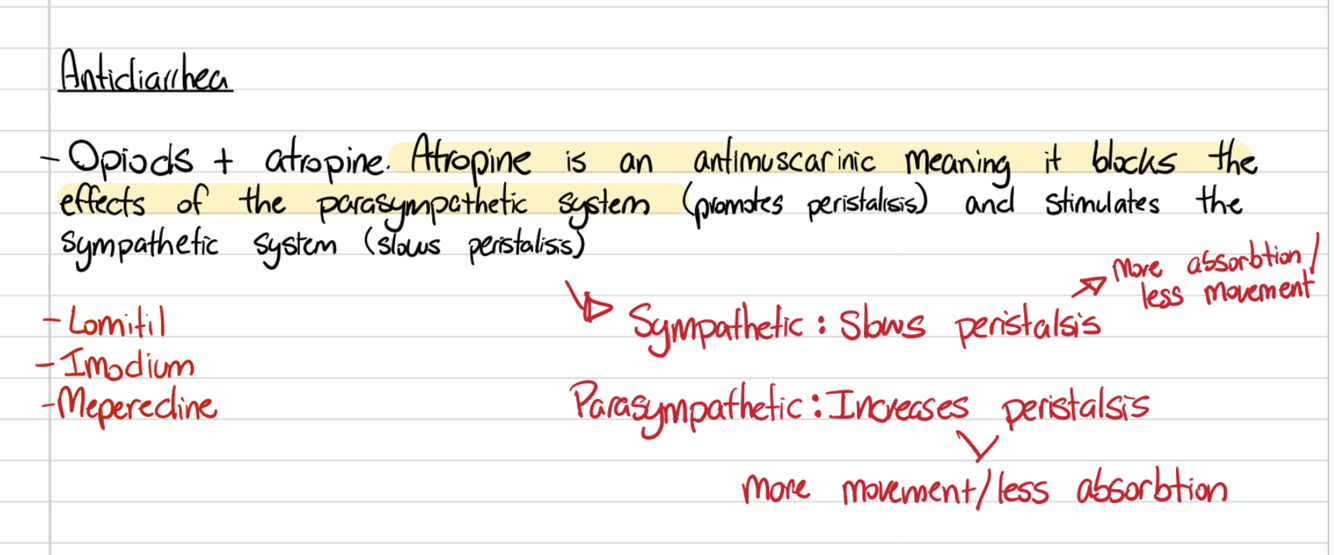 Antidiarrhea
- Opiods + atropine. Atropine is an antimuscarinic meaning it blocks the
effects of the parasympathetic system (promotes peristalisis) and stimulates the
sympathetic system (slows peristalisis)
More absorbtion/
less movement
- Lomitil
Sympathetic: Slows peristalsis
- Imodium
- Meperedine
Parasympathetic: Increases peristalsis
more movement/less absorbtion